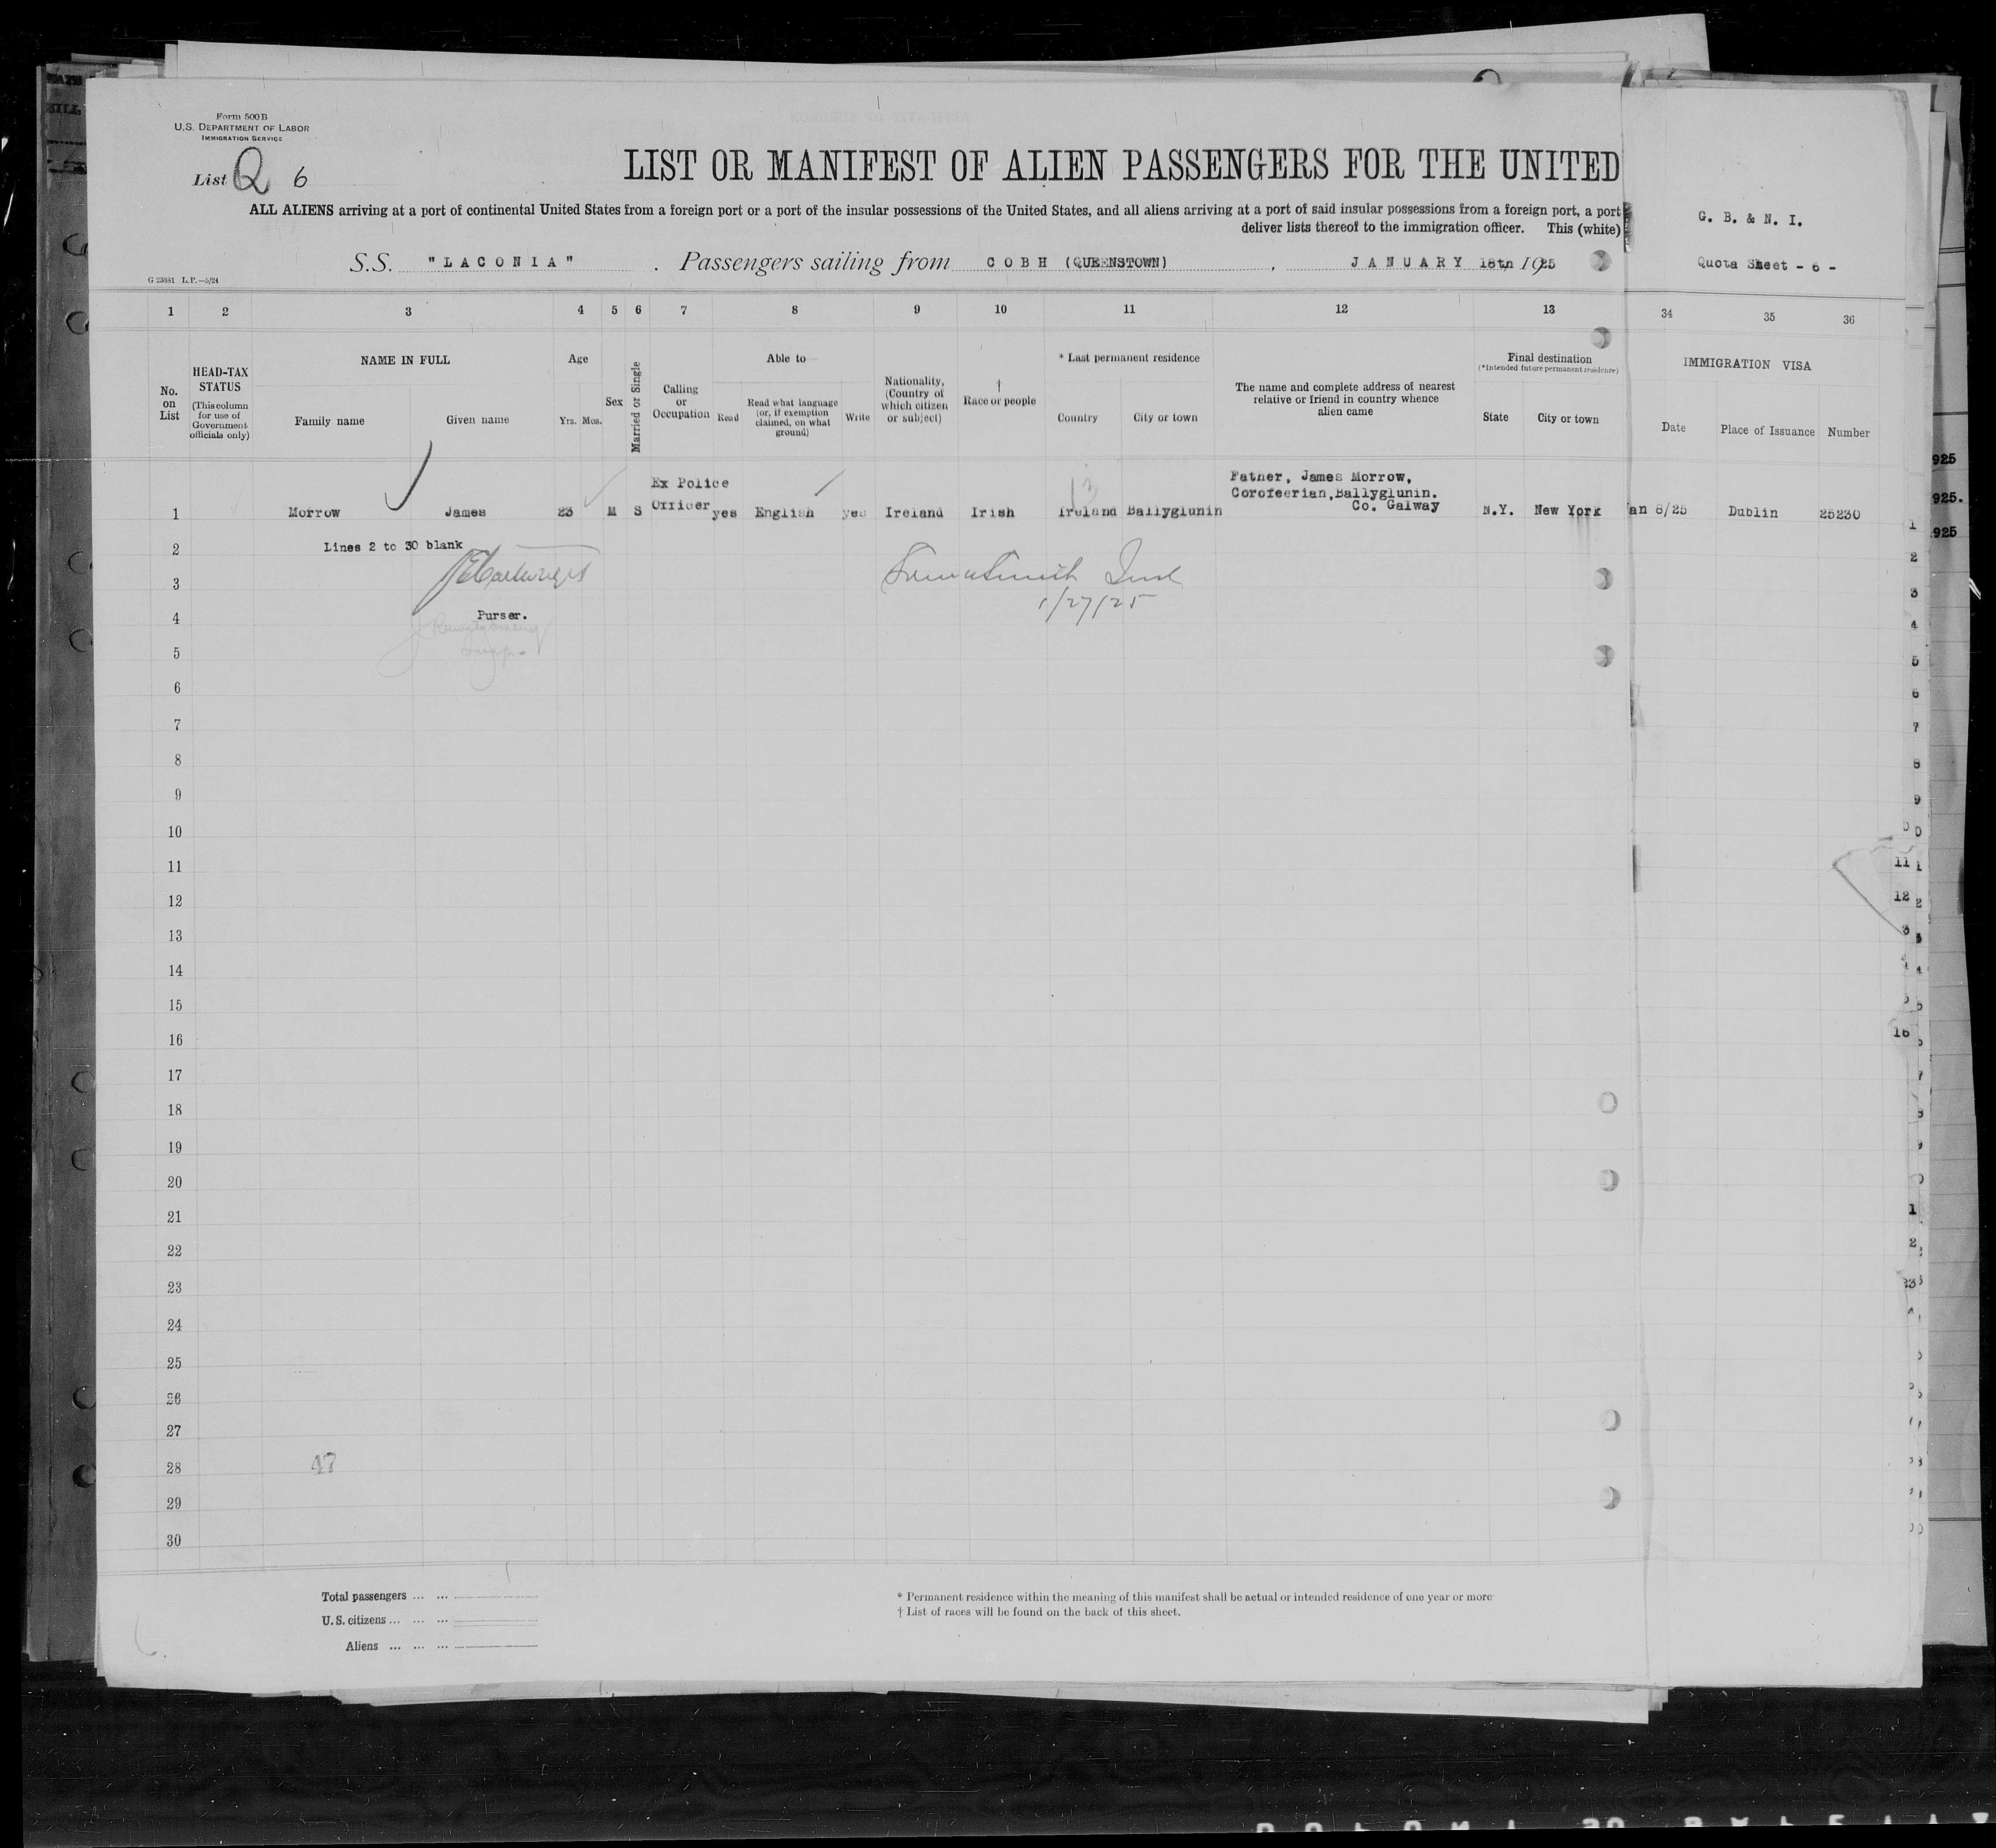 Form 500B
U.S. DEPARTMENT OF LABOR
IMMIGRATION SERVICE
List Q 6
LIST OR MANIFEST OF ALIEN PASSENGERS FOR THE UNITED
ALL ALIENS arriving at a port of continental United States from a foreign port or a port of the insular possessions of the United States, and all aliens arriving at a port of said insular possessions from a foreign port, a port
deliver lists thereof to the immigration officer. This (white)
G. B. & N. I.
S.S. "LACONIA". Passengers sailing from COBH (QUEENSTOWN), JANUARY 18th 1925
Quota Sheet - 6 -
G 23881 L.P.—5/24
1 2 3 4 5 6 7 8 9 10 11 12 13 34 35 36
No. on List
HEAD-TAX STATUS
(This column for use of Government officials only)
NAME IN FULL
Family name
Given name
Age
Yrs. Mos.
Sex
Married or Single
Calling or Occupation
Able to
Read
Read what language (or, if exemption claimed, on what ground)
Write
Nationality, (Country of which citizen or subject)
† Race or people
* Last permanent residence
Country
City or town
The name and complete address of nearest relative or friend in country whence alien came
Final destination
(*Intended future permanent residence)
State
City or town
IMMIGRATION VISA
Date
Place of Issuance
Number
1 Morrow James 23 M S Ex Police Officer yes English yes Ireland Irish Ireland Ballyglunin Father, James Morrow, Corofeerian, Ballyglunin. Co. Galway N.Y. New York an 8/25 Dublin 25230
13
2 Lines 2 to 30 blank
3
1/27/25
4 Purser.
5
6
7
8
9
10
11
12
13
14
15
16
17
18
19
20
21
22
23
24
25
26
27
28 47
29
30
Total passengers ... ...
U.S. citizens ... ... ...
Aliens ... ... ...
* Permanent residence within the meaning of this manifest shall be actual or intended residence of one year or more
† List of races will be found on the back of this sheet.
925
925.
925